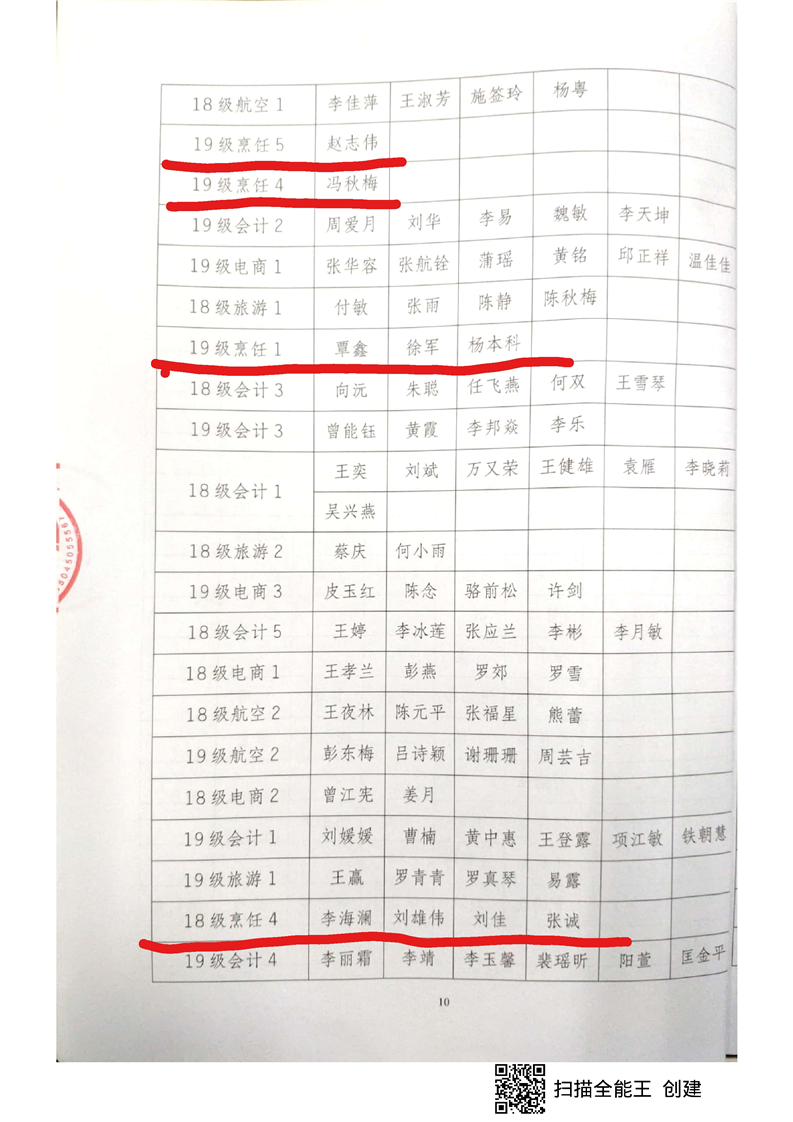 18级航空1 李佳萍 王淑芳 施签玲 杨粤
19级烹饪5 赵志伟
19级烹饪4 冯秋梅
19级会计2 周爱月 刘华 李易 魏敏 李天坤
19级电商1 张华容 张航铨 蒲瑶 黄铭 邱正祥 温佳佳
18级旅游1 付敏 张雨 陈静 陈秋梅
19级烹饪1 覃鑫 徐军 杨本科
18级会计3 向沅 朱聪 任飞燕 何双 王雪琴
19级会计3 曾能钰 黄霞 李邦焱 李乐
18级会计1 王奕 刘斌 万又荣 王健雄 袁雁 李晓莉
吴兴燕
18级旅游2 蔡庆 何小雨
19级电商3 皮玉红 陈念 骆前松 许剑
18级会计5 王婷 李冰莲 张应兰 李彬 李月敏
18级电商1 王孝兰 彭燕 罗郊 罗雪
18级航空2 王夜林 陈元平 张福星 熊蕾
19级航空2 彭东梅 吕诗颖 谢珊珊 周芸吉
18级电商2 曾江宪 姜月
19级会计1 刘媛媛 曹楠 黄中惠 王登露 项江敏 铁朝慧
19级旅游1 王赢 罗青青 罗真琴 易露
18级烹饪4 李海澜 刘雄伟 刘佳 张诚
19级会计4 李丽霜 李靖 李玉馨 裴瑶昕 阳萱 匡金平
10
扫描全能王 创建